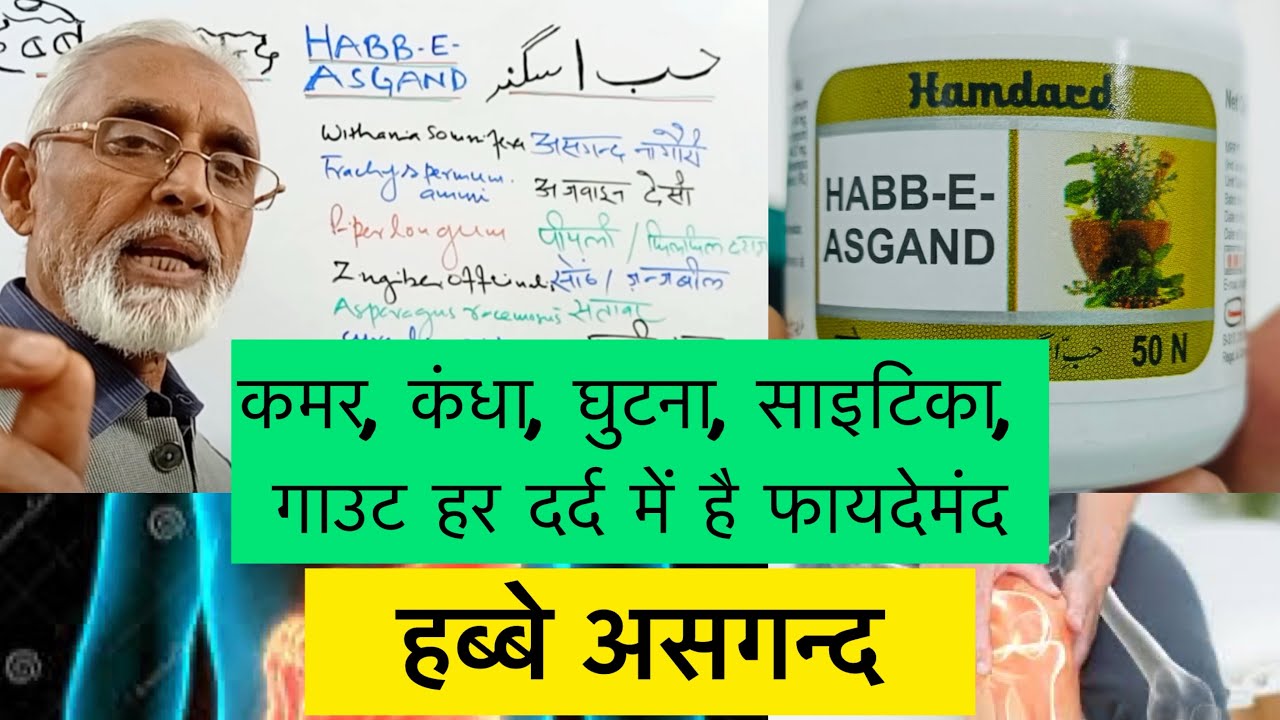 HABB-E-
ASGAND
حب اسگند
Withania Somnifera असगन्द नागौरी
Trachyspermum
ammi
अजवाइन देसी
Piper longum पीपली /
Zngiber सोंठ / ज़न्जबील
Asparagus racemosus सतावर
Hamdard
HABB-E-
ASGAND
50 N
कमर, कंधा, घुटना, साइटिका,
गाउट हर दर्द में है फायदेमंद
हब्बे असगन्द